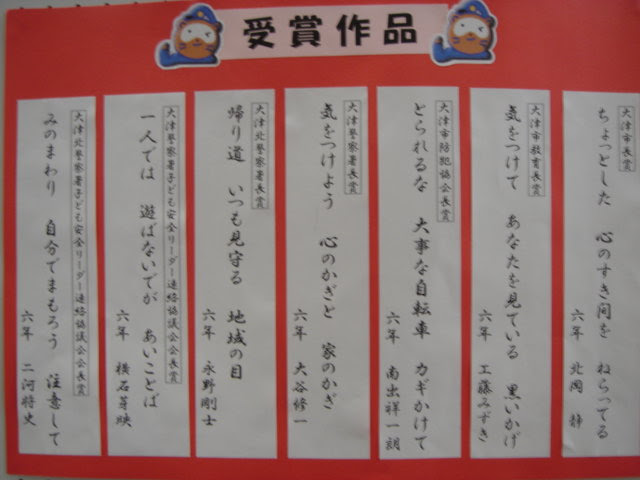 受賞作品
大津市長賞
ちょっとした 心のすき間を ねらってる
六年 北岡 静
大津市教育長賞
気をつけて あなたを見ている 黒いかげ
六年 工藤みずき
大津市防犯協会長賞
とられるな 大事な自転車 カギかけて
六年 南出祥一朗
大津警察署長賞
気をつけよう 心のかぎと 家のかぎ
六年 大谷修一
大津北警察署長賞
帰り道 いつも見守る 地域の目
六年 永野剛士
大津警察署子ども安全リーダー連絡協議会会長賞
一人では 遊ばないでが あいことば
六年 横石芽映
大津北警察署子ども安全リーダー連絡協議会会長賞
みのまわり 自分でまもろう 注意して
六年 二河将史